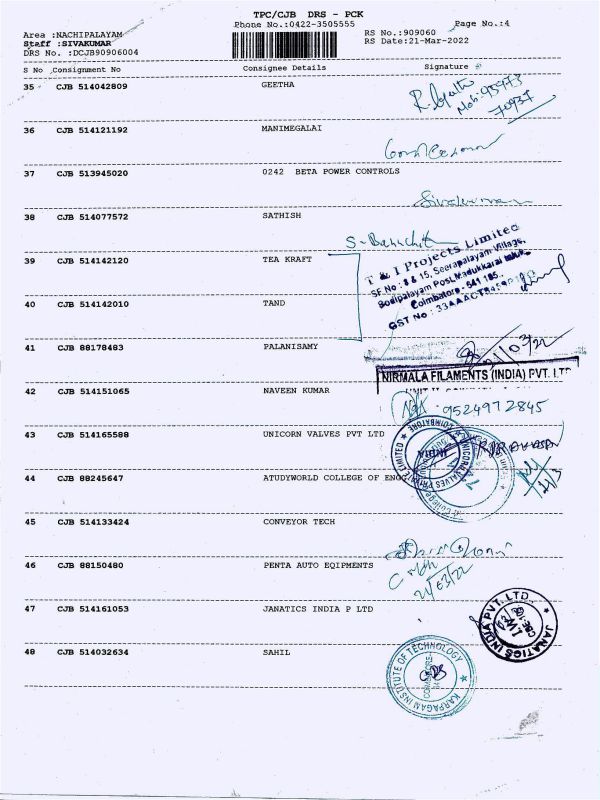 TPC/CJB DRS - PCK
Phone No.:0422-3505555
Page No.:4
Area :NACHIPALAYAM
RS No.:909060
Staff :SIVAKUMAR
RS Date:21-Mar-2022
DRS No. :DCJB90906004
S No Consignment No Consignee Details Signature
35 CJB 514042809 GEETHA
Mob: 95973
70937
36 CJB 514121192 MANIMEGALAI
37 CJB 513945020 0242 BETA POWER CONTROLS
38 CJB 514077572 SATHISH
39 CJB 514142120 TEA KRAFT
T & I Projects Limited
SF.No: 8 & 15, Seerapalayam Village,
Bodipalayam Post, Madukkarai
Coimbatore - 641 105.
GST No :
40 CJB 514142010 TAND
41 CJB 88178483 PALANISAMY
NIRMALA FILAMENTS (INDIA) PVT. LTD
42 CJB 514151065 NAVEEN KUMAR
9524972845
43 CJB 514165588 UNICORN VALVES PVT LTD
UNICORN VALVES PRIVATE LIMITED
COIMBATORE
INDIA
44 CJB 88245647 ATUDYWORLD COLLEGE OF ENGG
21/3
45 CJB 514133424 CONVEYOR TECH
46 CJB 88150480 PENTA AUTO EQIPMENTS
21/03/22
47 CJB 514161053 JANATICS INDIA P LTD
JANATICS INDIA PVT. LTD.
48 CJB 514032634 SAHIL
KARPAGAM INSTITUTE OF TECHNOLOGY